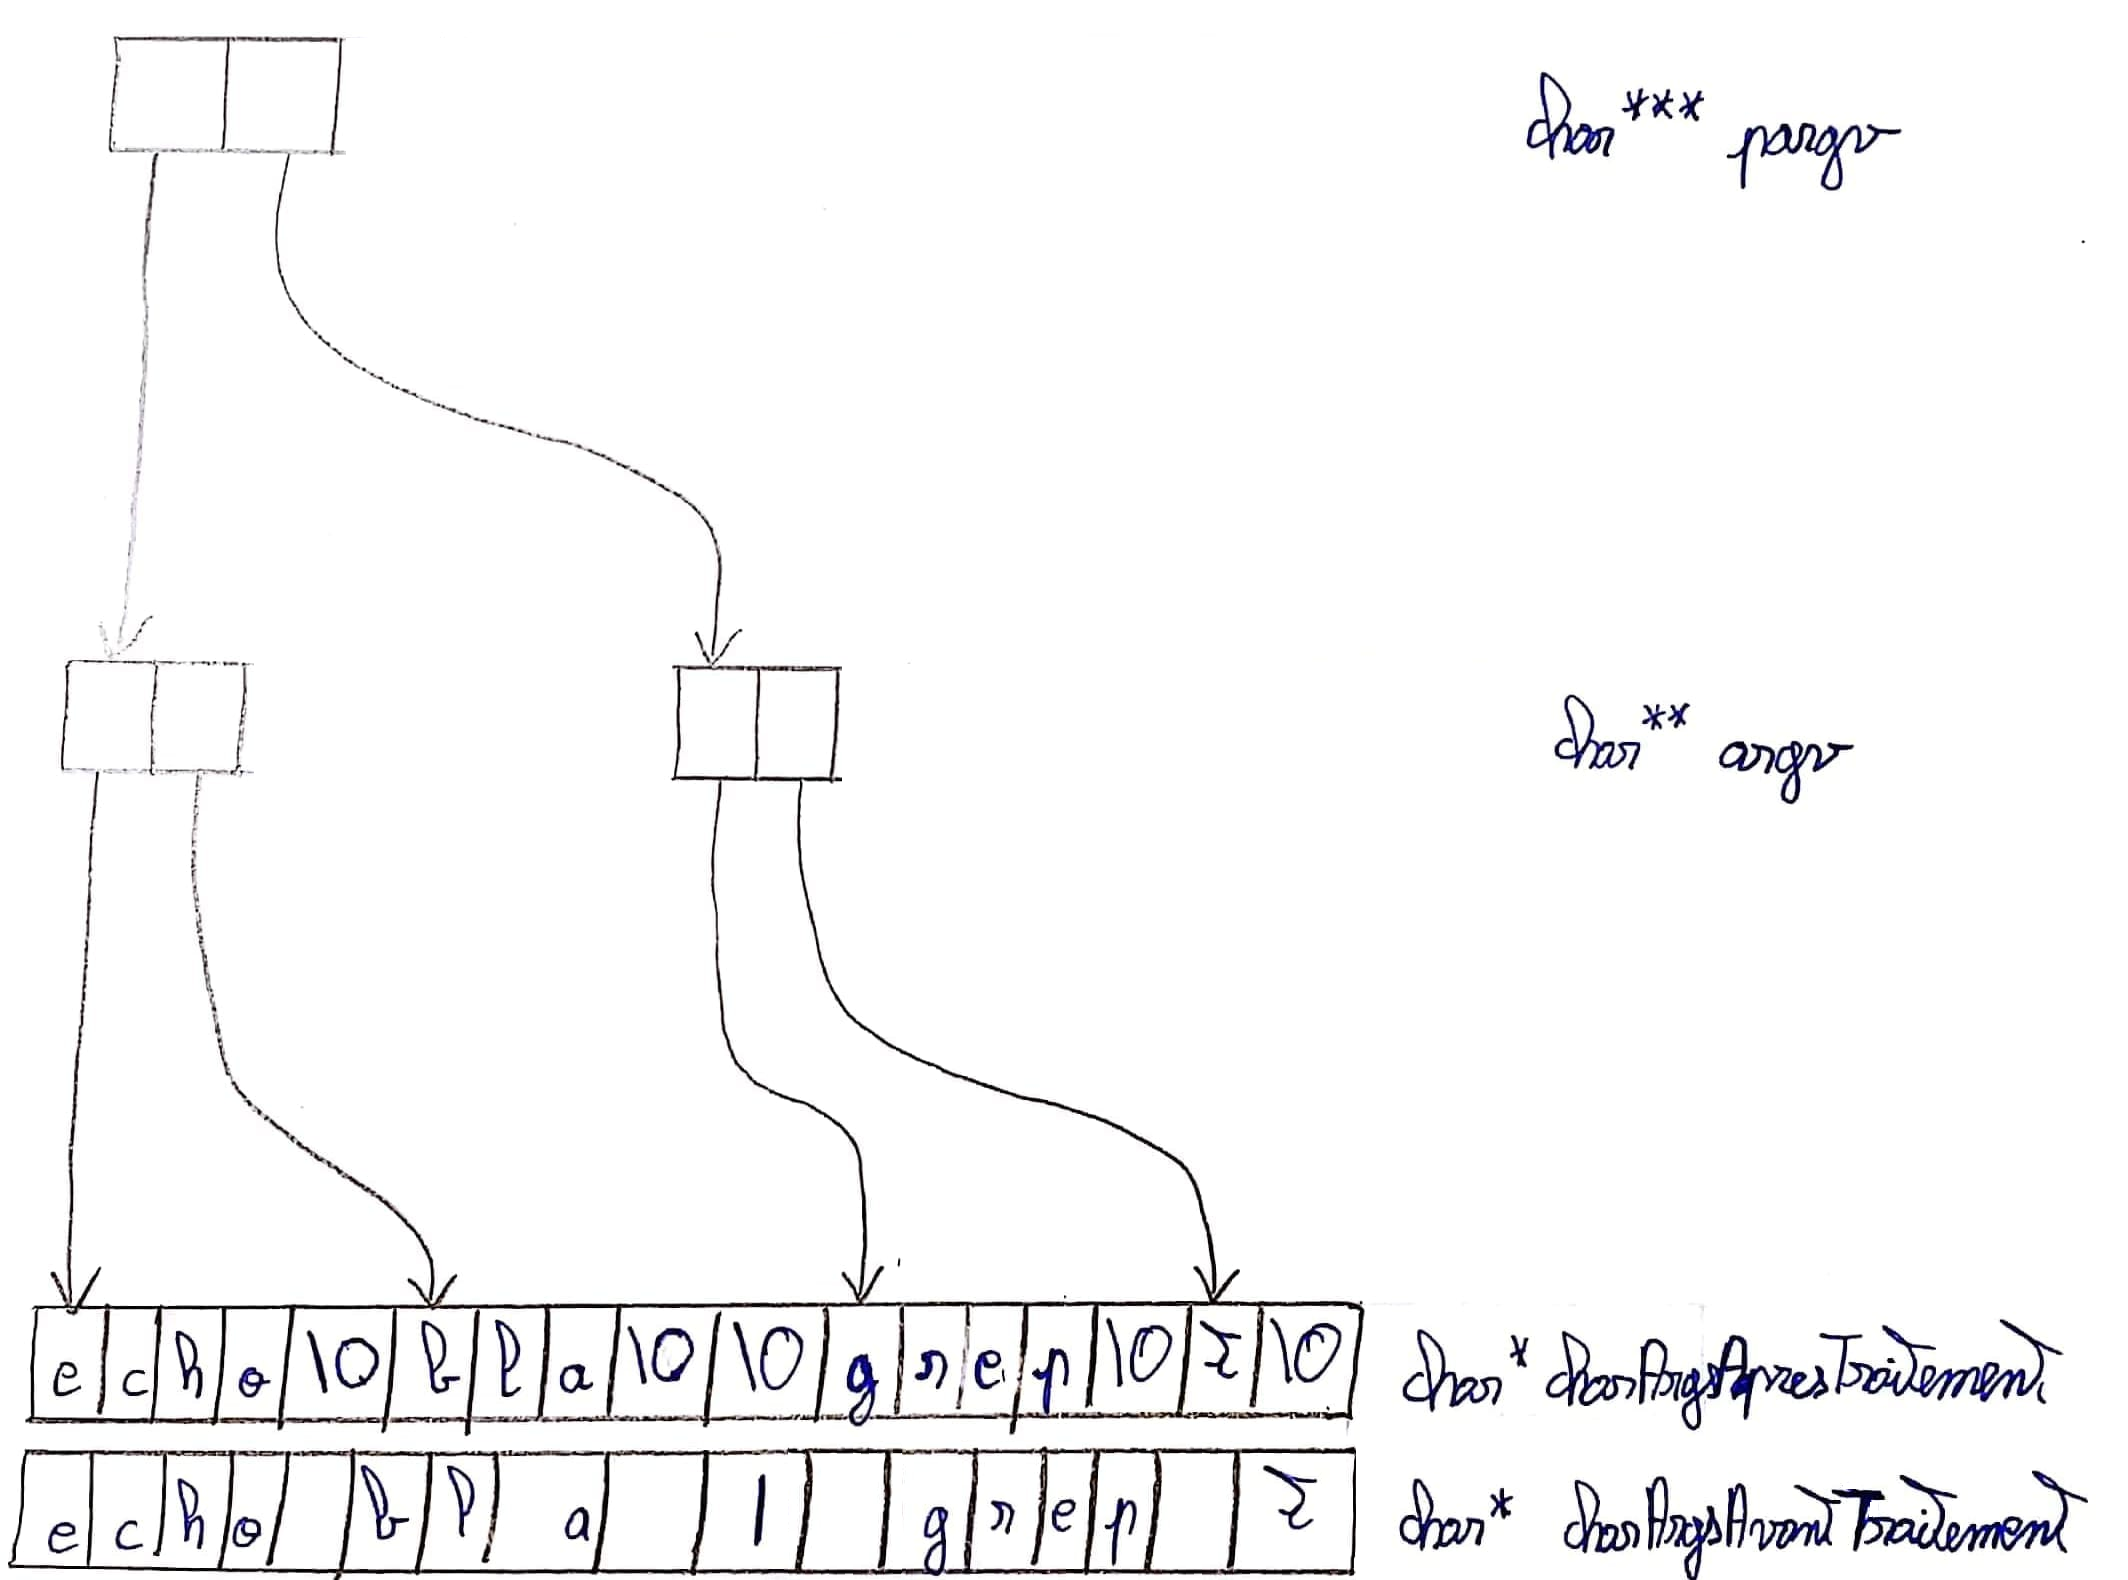 char*** pargv
char** argv
e c h o \0 b l a \0 \0 g r e p \0 z \0 char* charArgsApresTraitement
e c h o b l a | g r e p z char* charArgsAvantTraitement